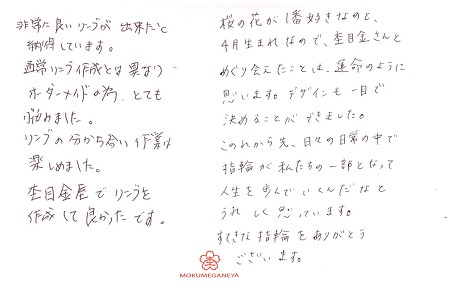 非常に良いリングが出来たと
納得しています。
通常リング作成とは異なり
オーダーメイドの為、とても
悩めました。
リングの分かち合い作業は
楽しめました。
杢目金屋でリングを
作成して良かったです。
桜の花が1番好きなのと、
4月生まれなので、杢目金さんと
めぐり会えたことは、運命のように
思います。デザインも一目で
決めることができました。
これから先、日々の日常の中で
指輪が私たちの一部となって
人生を歩んでいくんだなと
うれしく思っています。
すてきな指輪をありがとう
ございます。
MOKUMEGANEYA